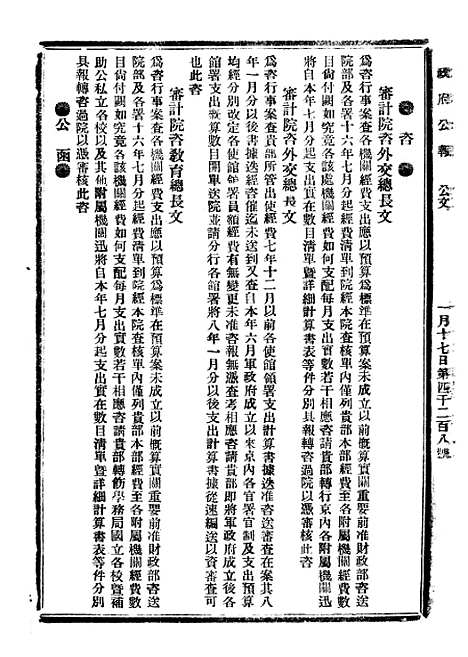 政府公報　公文
一月十七日第四千二百八號
●咨●
審計院咨外交總長文
爲咨行事案查各機關經費支出應以預算爲標準在預算案未成立以前概算實關重要前准財政部咨送
院部及各署十六年七月分起經費清單到院經本院查核單內僅列貴部本部經費至各附屬機關經費數
目尙付闕如究竟各該處機關經費如何支配每月支出實數若干相應咨請貴部轉行京內各附屬機關迅
將自本年七月分起支出實在數目清單暨詳細計算書表等件分別具報轉咨過院以憑審核此咨
審計院咨外交總長文
爲咨行事案查貴部所管出使經費七年十二月以前各使館領署支出計算書據迭准咨送審查在案其八
年一月分以後書據送經咨催迄未送到又查自本年六月軍政府成立以來京內各官署官制及支出預算
均經分別改定各使館領署員額及經費有無變更未准咨報無憑查考相應咨請貴部即將軍政府成立後各
館署支出概算數目開單送院並請分行各館署將八年一月分以後支出計算書據從速編送以資審查可
也此咨
審計院咨教育總長文
爲咨行事案查各機關經費支出應以預算爲標準在預算案未成立以前概算實關重要前准財政部咨送
院部及各署十六年七月分起經費清單到院經本院查核單內僅列貴部本部經費至各附屬機關經費數
目尙付闕如究竟各該機關經費如何支配每月支出實數若干相應咨請貴部轉飭學務局國立各校暨補
助公私立各校以及其他附屬機關迅將自本年七月分起支出實在數目清單暨詳細計算書表等件分別
具報轉咨過院以憑審核此咨
●公函●